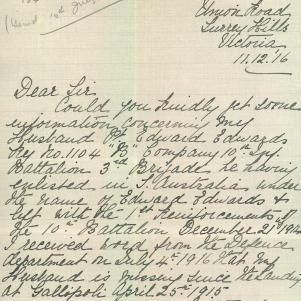 Union Road
Surrey Hills
Victoria
11.12.16
Dear Sir
Could you kindly get some
information concerning my
Husband Pte Edward Edwards
Reg No. 1104 "B" Company 10th Inf.
Battalion 3rd Brigade, he having
enlisted in S. Australia under
the name of Edward Edwards &
left with the 1st Reinforcements of
the 10th Battalion December 21st 1914
I received word from the Defence
department on July 4th 1916 that my
Husband is missing since the landing
at Gallipoli April 25th 1915